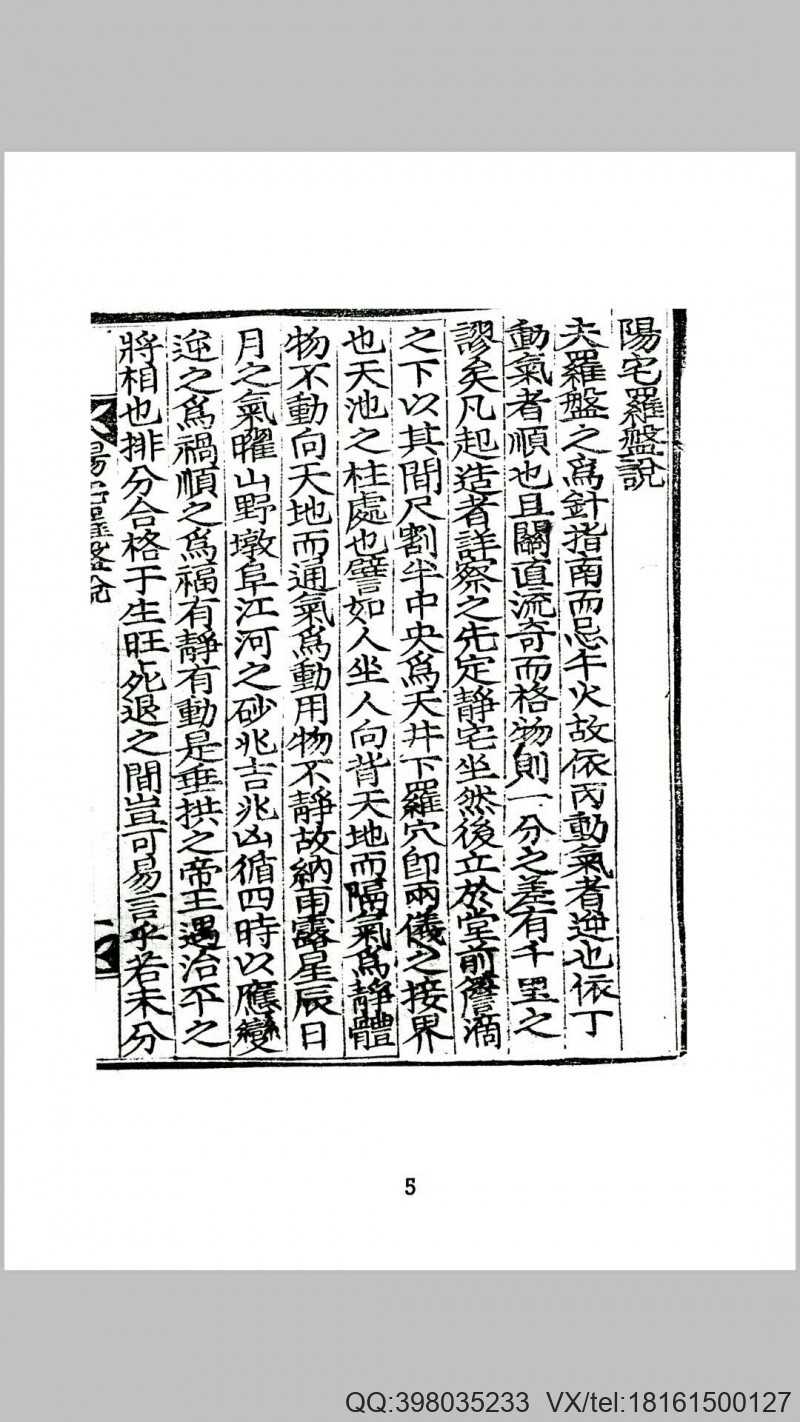 陽宅羅盤說
夫羅盤之爲針指南而忌午火故依丙動氣者逆也依丁
動氣者順也且關直流奇而格物則一分之差有千里之
謬矣凡起造者詳察之先定靜宅坐然後立於堂前簷滴
之下以其間尺割半中央爲天井下羅穴卽兩儀之接界
也天池之柱處也譬如人坐人向背天地而隔氣爲靜體
物不動向天地而通氣爲動用物不靜故納雨露星辰日
月之氣曜山野墩阜江河之砂兆吉兆凶循四時以應變
逆之爲禍順之爲福有靜有動是垂拱之帝王遇治平之
將相也排分合格于生旺死退之間豈可易言乎若未分
陽宅羅盤說
5
QQ:398035233 VX/tel:18161500127